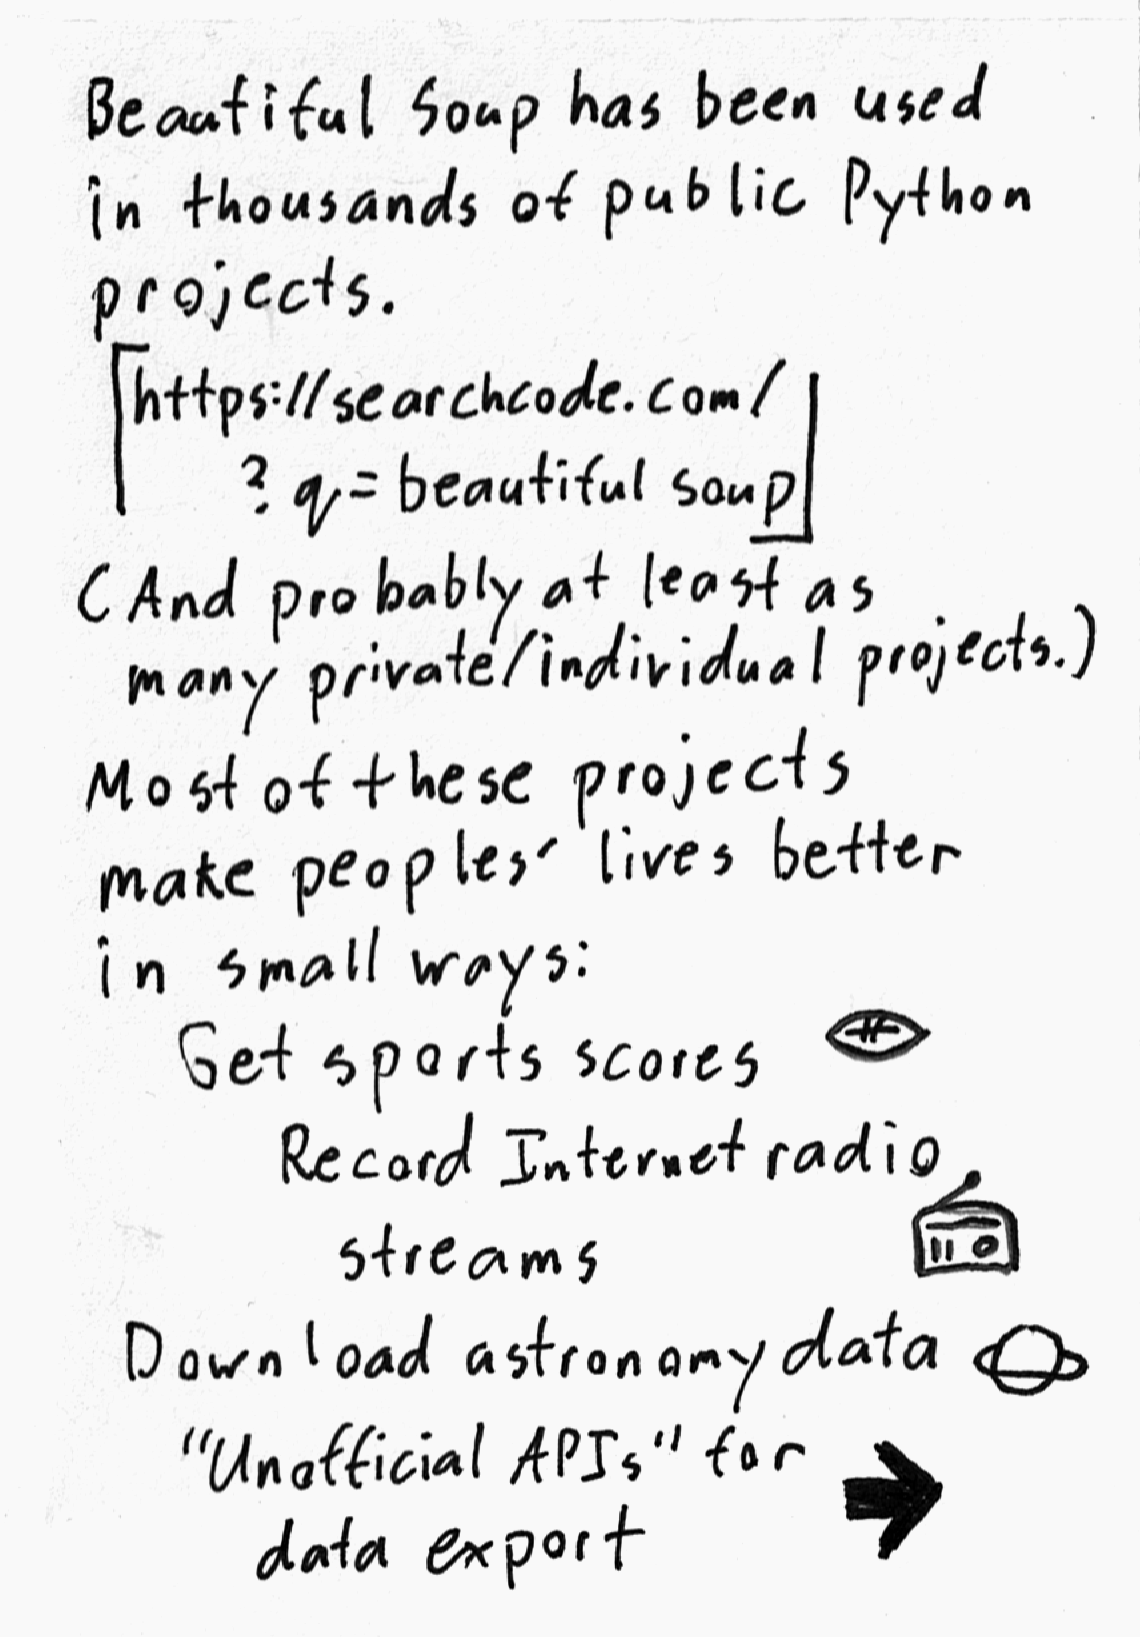 Beautiful Soup has been used
in thousands of public Python
projects.
https://searchcode.com/
?q=beautiful soup
(And probably at least as
many private/individual projects.)
Most of these projects
make peoples' lives better
in small ways:
Get sports scores
Record Internet radio
streams
Download astronomy data
"Unofficial APIs" for
data export